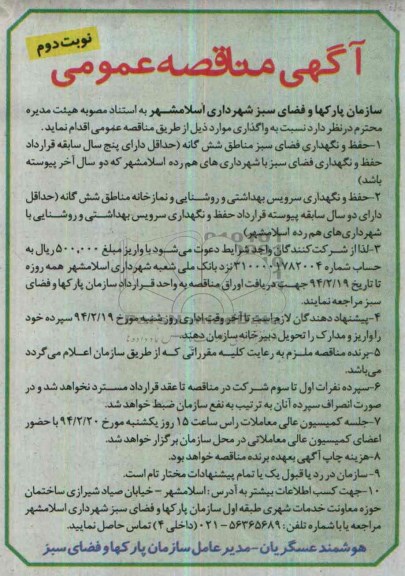 نوبت دوم
آگهی مناقصه عمومی
سازمان پارکها و فضای سبز شهرداری اسلامشهر به استناد مصوبه هیئت مدیره
محترم درنظر دارد نسبت به واگذاری موارد ذیل از طریق مناقصه عمومی اقدام نماید.
۱-حفظ و نگهداری فضای سبز مناطق شش گانه (حداقل دارای پنج سال سابقه قرارداد
حفظ و نگهداری فضای سبز با شهرداری های هم رده اسلامشهر که دو سال آخر پیوسته
باشد)
۲-حفظ و نگهداری سرویس بهداشتی و روشنایی و نمازخانه مناطق شش گانه (حداقل
دارای دو سال سابقه پیوسته قرارداد حفظ و نگهداری سرویس بهداشتی و روشنایی با
شهرداری های هم رده اسلامشهر)
۳-لذا از شرکت کنندگان واجد شرایط دعوت می شود با واریز مبلغ ۵۰۰,۰۰۰ ریال به
حساب شماره نزد بانک ملی شعبه شهرداری اسلامشهر همه روزه
تا تاریخ ۹۴/۲/۱۹ جهت دریافت اوراق مناقصه به واحد قرارداد سازمان پارکها و فضای
سبز مراجعه نمایند.
۴-پیشنهاد دهندگان لازم است تا آخر وقت اداری روز شنبه مورخ ۹۴/۲/۱۹ سپرده خود
را واریز و مدارک را تحویل دبیرخانه سازمان دهند.
۵-برنده مناقصه ملزم به رعایت کلیه مقرراتی که از طریق سازمان اعلام می گردد
می باشد.
۶-سپرده نفرات اول تا سوم شرکت در مناقصه تا عقد قرارداد مسترد نخواهد شد و در
صورت انصراف سپرده آنان به ترتیب به نفع سازمان ضبط خواهد شد.
۷-جلسه کمیسیون عالی معاملات راس ساعت ۱۵ روز یکشنبه مورخ ۹۴/۲/۲۰ با حضور
اعضای کمیسیون عالی معاملاتی در محل سازمان برگزار خواهد شد.
۸-هزینه چاپ آگهی بعهده برنده مناقصه خواهد بود.
۹-سازمان در رد یا قبول یک یا تمام پیشنهادات مختار تام است.
۱۰-جهت کسب اطلاعات بیشتر به آدرس: اسلامشهر - خیابان صیاد شیرازی ساختمان
حوزه معاونت خدمات شهری طبقه اول سازمان پارکها و فضای سبز شهرداری اسلامشهر
مراجعه یا با شماره تلفن: ۵۶۳۶۵۶۸۹-۰۲۱ (داخلی ۴) تماس حاصل نمایید.
هوشمند عسگریان-مدیرعامل سازمان پارکها و فضای سبز